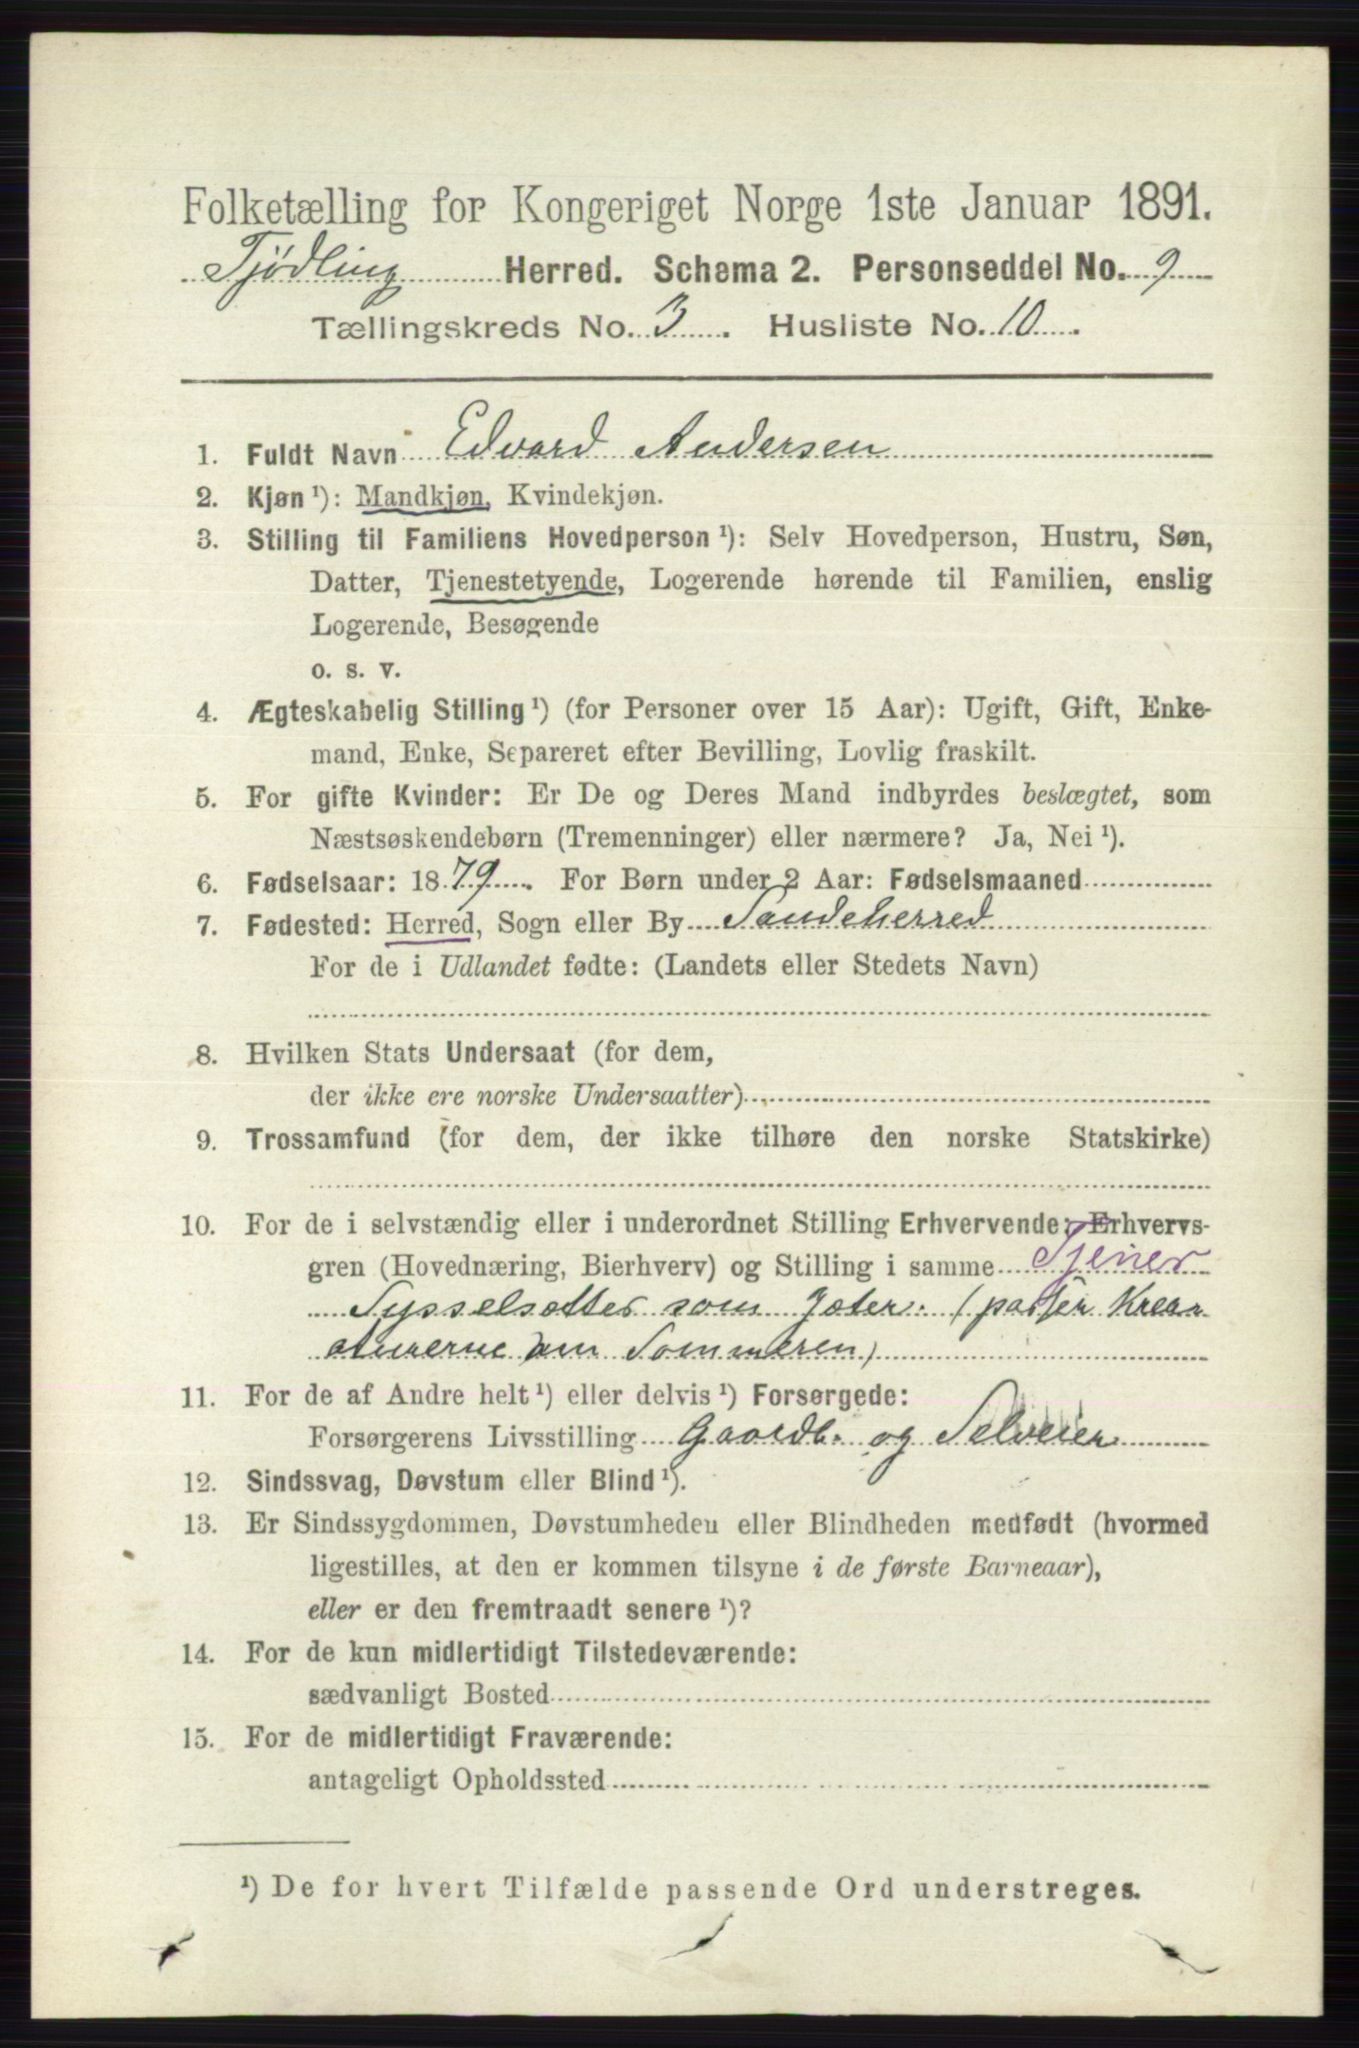 Folketælling for Kongeriget Norge 1ste Januar 1891.
Tjødling Herred. Schema 2. Personseddel No. 9
Tællingskreds No. 3. Husliste No. 10.
1. Fuldt Navn Edvard Andersen
2. Kjøn ¹): Mandkjøn, Kvindekjøn.
3. Stilling til Familiens Hovedperson ¹): Selv Hovedperson, Hustru, Søn,
Datter, Tjenestetyende, Logerende hørende til Familien, enslig
Logerende, Besøgende
o. s. v.
4. Ægteskabelig Stilling ¹) (for Personer over 15 Aar): Ugift, Gift, Enke-
mand, Enke, Separeret efter Bevilling, Lovlig fraskilt.
5. For gifte Kvinder: Er De og Deres Mand indbyrdes beslægtet, som
Næstsøskendebørn (Tremenninger) eller nærmere? Ja, Nei ¹).
6. Fødselsaar: 1879. For Børn under 2 Aar: Fødselsmaaned
7. Fødested: Herred, Sogn eller By Sandeherred
For de i Udlandet fødte: (Landets eller Stedets Navn)
8. Hvilken Stats Undersaat (for dem,
der ikke ere norske Undersaatter)
9. Trossamfund (for dem, der ikke tilhøre den norske Statskirke)
10. For de i selvstændig eller i underordnet Stilling Erhvervende: Erhvervs-
gren (Hovednæring, Bierhverv) og Stilling i samme Tjener
Sysselsættes som Jæter. (passer Krea-
aturerne om Sommeren)
11. For de af Andre helt ¹) eller delvis ¹) Forsørgede:
Forsørgerens Livsstilling Gaardb. og Selveier
12. Sindssvag, Døvstum eller Blind ¹).
13. Er Sindssygdommen, Døvstumheden eller Blindheden medfødt (hvormed
ligestilles, at den er kommen tilsyne i de første Barneaar),
eller er den fremtraadt senere ¹)?
14. For de kun midlertidigt Tilstedeværende:
sædvanligt Bosted
15. For de midlertidigt Fraværende:
antageligt Opholdssted
¹) De for hvert Tilfælde passende Ord understreges.